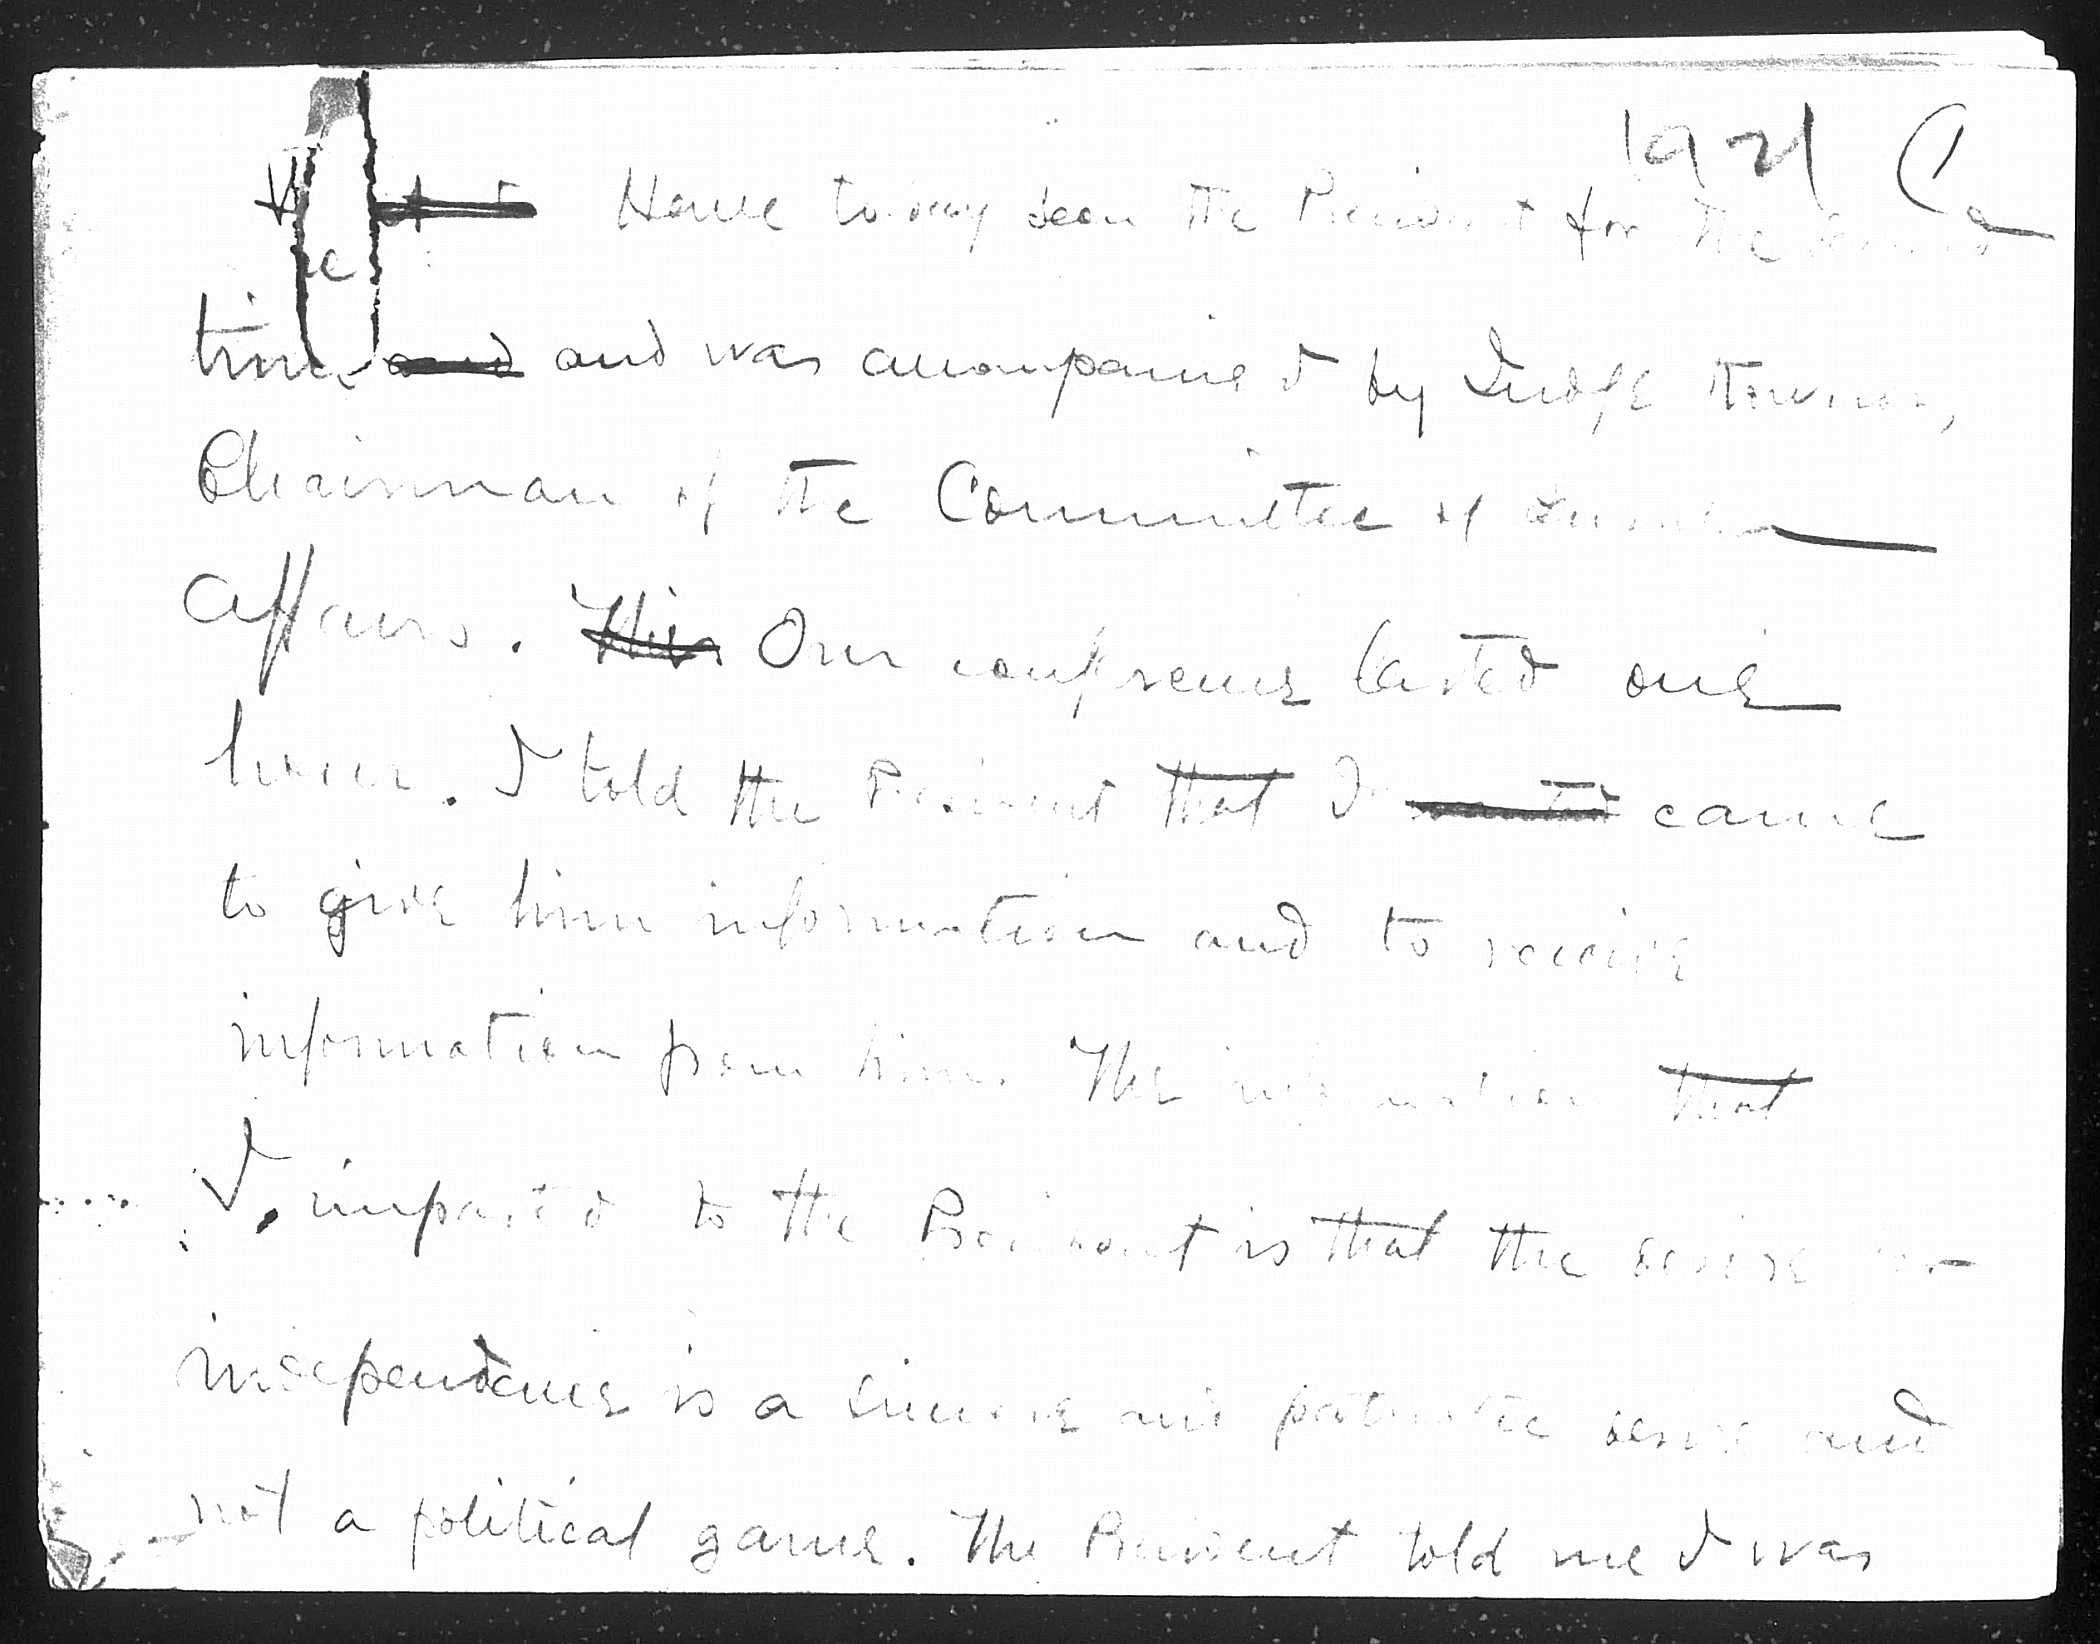 1921 Ca
Have today seen the President for the second
time and and was accompanied by Judge Towner,
Chairman of the Committee of Insular
affairs. This Our conference lasted one
hour. I told the President that I wanted came
to give him information and to receive
information from him. The information that
I imparted to the President is that the desire for
independence is a sincere and patriotic desire and
not a political game. The President told me I was